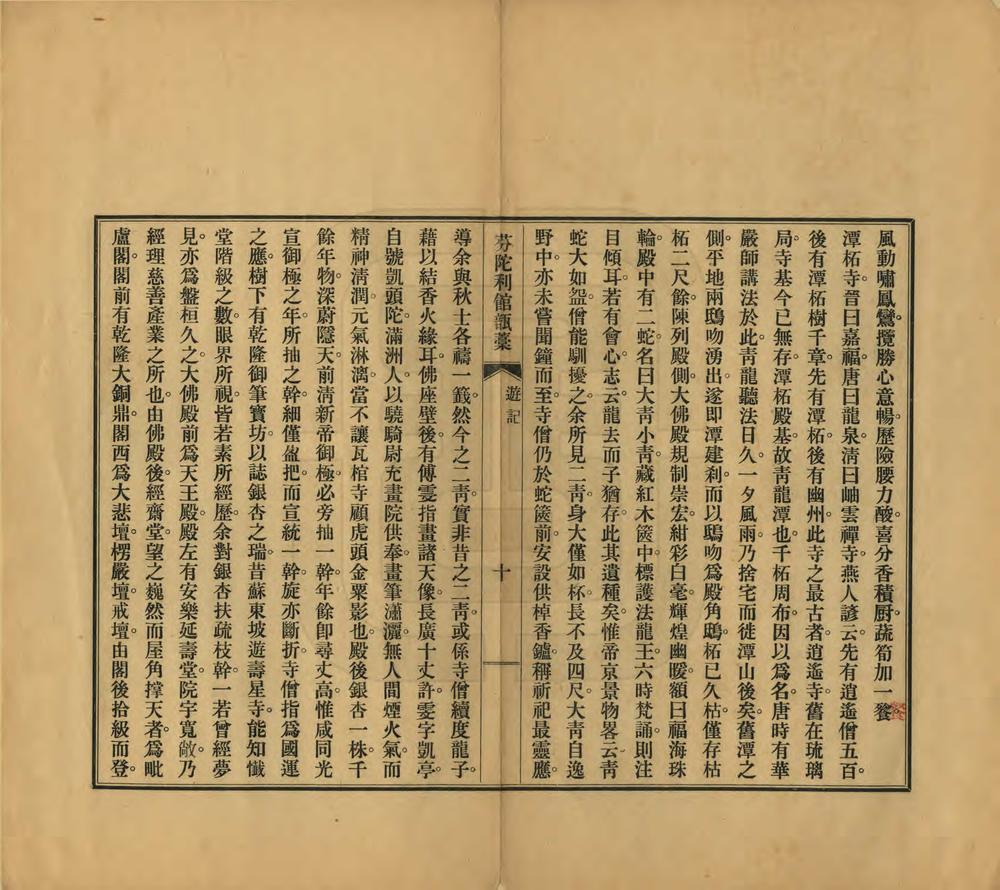 風動嘯鳳鸞攬勝心意暢。歷險腰力酸。喜分香積厨。蔬筍加一餐。
潭柘寺。晉曰嘉福。唐曰龍泉。清曰岫雲禪寺。燕人諺云。先有逍遙僧五百。
後有潭柘樹千章。先有潭柘。後有幽州。此寺之最古者。逍遙寺。舊在琉璃
局。寺基今已無存。潭柘殿基。故靑龍潭也。千柘周布。因以爲名。唐時有華
嚴師講法於此。靑龍聽法日久。一夕風雨。乃捨宅而徙潭山後矣。舊潭之
側。平地兩鴟吻湧出。遂卽潭建刹。而以鴟吻爲殿角鴟。柘已久枯。僅存枯
柘二尺餘。陳列殿側。大佛殿規制崇宏。紺彩白毫。輝煌幽曖。額曰福海珠
輪。殿中有二蛇。名曰大靑小靑。藏紅木篋中。標護法龍王。六時梵誦則注
目傾耳。若有會心。志云。龍去而子猶存。此其遺種矣。惟帝京景物畧云。靑
蛇大如盌。僧能馴擾之。余所見二靑。身大僅如杯。長不及四尺。大靑自逸
野中。亦未嘗聞鐘而至。寺僧仍於蛇篋前。安設供棹香鑪。稱祈祀最靈應。
芬陀利館瓿藁
遊記
十
導余與秋士各禱一籤。然今之二靑。實非昔之二靑。或係寺僧續度龍子。
藉以結香火緣耳。佛座壁後。有傅雯指畫諸天像。長廣十丈許。雯字凱亭。
自號凱頭陀。滿洲人。以驍騎尉充畫院供奉。畫筆瀟灑。無人間煙火氣。而
精神淸潤。元氣淋漓。當不讓瓦棺寺顧虎頭金粟影也。殿後銀杏一株。千
餘年物。深蔚隱天。前淸新帝御極。必旁抽一幹。年餘卽尋丈高。惟咸同光
宣御極之年。所抽之幹。細僅盈把。而宣統一幹。旋亦斷折。寺僧指爲國運
之應。樹下有乾隆御筆寶坊。以誌銀杏之瑞。昔蘇東坡遊壽星寺。能知懺
堂階級之數。眼界所視。皆若素所經歷。余對銀杏扶疏枝幹。一若曾經夢
見。亦爲盤桓久之。大佛殿前爲天王殿。殿左有安樂延壽堂。院宇寬敞。乃
經理慈善產業之所也。由佛殿後經齋堂。望之巍然而屋角撑天者。爲毗
盧閣。閣前有乾隆大銅鼎。閣西爲大悲壇。楞嚴壇。戒壇。由閣後拾級而登。